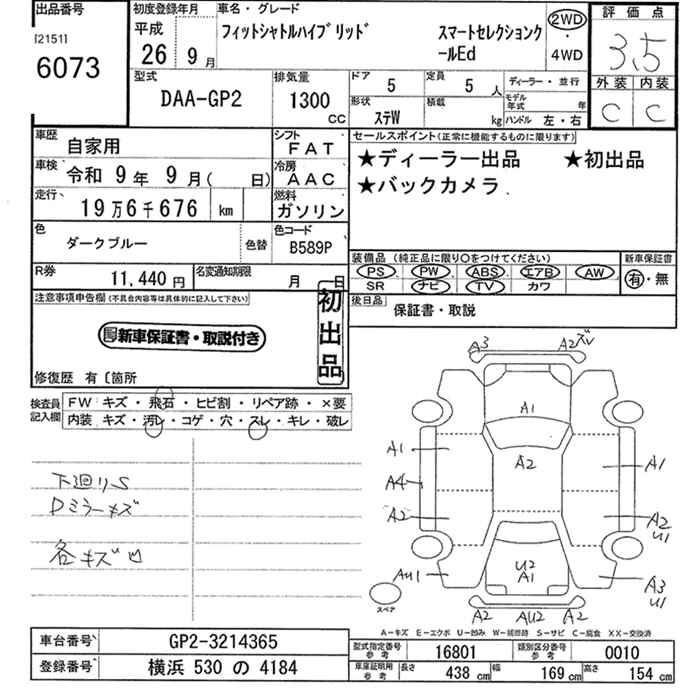 出品番号
[2151]
6073
初度登録年月
平成
26 9月
車名・グレード
フィットシャトルハイブリッド スマートセレクションク
ールEd
2WD
・
4WD
評価点
3.5
外装 内装
C C
型式
DAA-GP2
排気量
1300
CC
ドア
5
定員
5人
形状
ステW
積載
kg
ディーラー・並行
モデル年式 年
ハンドル 左・右
車歴
自家用
シフト
FAT
車検
令和 9年 9月( 日)
冷房
AAC
走行
19万6千676 km
燃料
ガソリン
色
ダークブルー
色替
色コード
B589P
R券
11,440円
名変通知期限
月 日
セールスポイント(正常に機能するものに限ります)
★ディーラー出品 ★初出品
★バックカメラ
装備品 (純正品に限り○をつけてください)
PS PW ABS エアB AW
SR ナビ TV カワ
新車保証書
有・無
後日品
保証書・取説
注意事項申告欄(不具合内容等は具体的に記入して下さい)
新車保証書・取説付き
初出品
修復歴 有〔箇所
検査員
記入欄
FW キズ・飛石・ヒビ割・リペア跡・×要
内装 キズ・汚レ・コゲ・穴・スレ・キレ・破レ
下廻りS
Dミラーキズ
各キズ凹
A3 A2ズレ
A1
A2
A1
A4
A2
A1
A2
U1
AU1
U2
A1
A3
U1
A2 AU2 A2
スペア
A-キズ E-エクボ U-凹み W-補修跡 S-サビ C-腐食 XX-交換済
車台番号
GP2-3214365
登録番号
横浜 530 の 4184
型式指定番号
参考
16801
類別区分番号
参考
0010
車庫証明用
参考
長さ
438 cm
幅
169 cm
高さ
154 cm